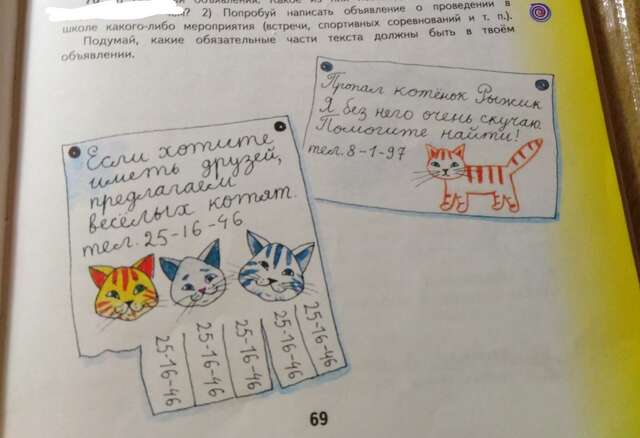 объявления.
? 2) Попробуй написать объявление о проведении в
школе какого-либо мероприятия (встречи, спортивных соревнований и т. п.).
Подумай, какие обязательные части текста должны быть в твоём
объявлении.
Пропал котёнок Рыжик
Я без него очень скучаю.
Помогите найти!
тел. 8-1-97
Если хотите
иметь друзей,
предлагаем
весёлых котят.
тел. 25-16-46
25-16-46
25-16-46
25-16-46
25-16-46
25-16-46
69